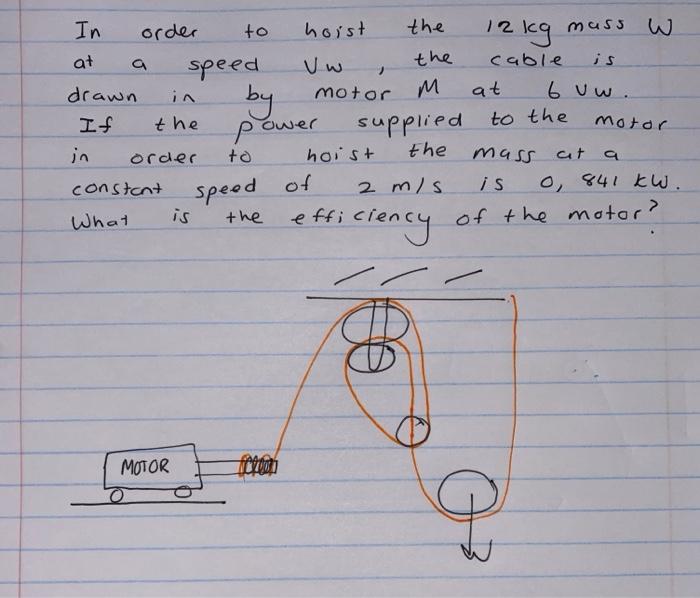 In order to hoist the 12 kg mass W
at a speed Vw, the cable is
drawn in by motor M at 6 vw.
If the power supplied to the motor
in order to hoist the mass at a
constant speed of 2 m/s is 0,841 kW.
What is the efficiency of the motor?
MOTOR
W